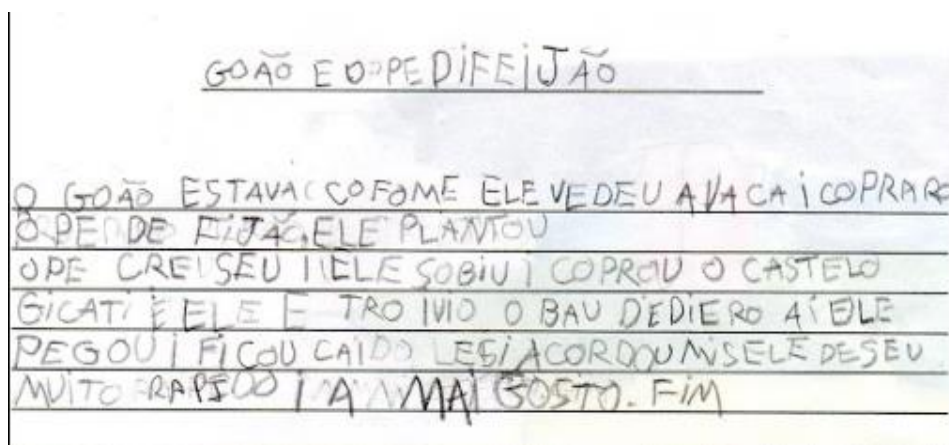 GOÃO E O PE DIFEIJÃO
O GOÃO ESTAVA COFOME ELE VEDEU A VACA I COPRAR
O PE DE FIJÃO, ELE PLANTOU
O PE CREISEU I ELE SOBIU I COPROU O CASTELO
GICATI E ELE E TRO IVIO O BAU DEDIERO AI ELE
PEGOU I FICOU CAIDO ACORDOU MSELE DESEU
MUITO RAPIDO I A MAI GOSTO. FIM